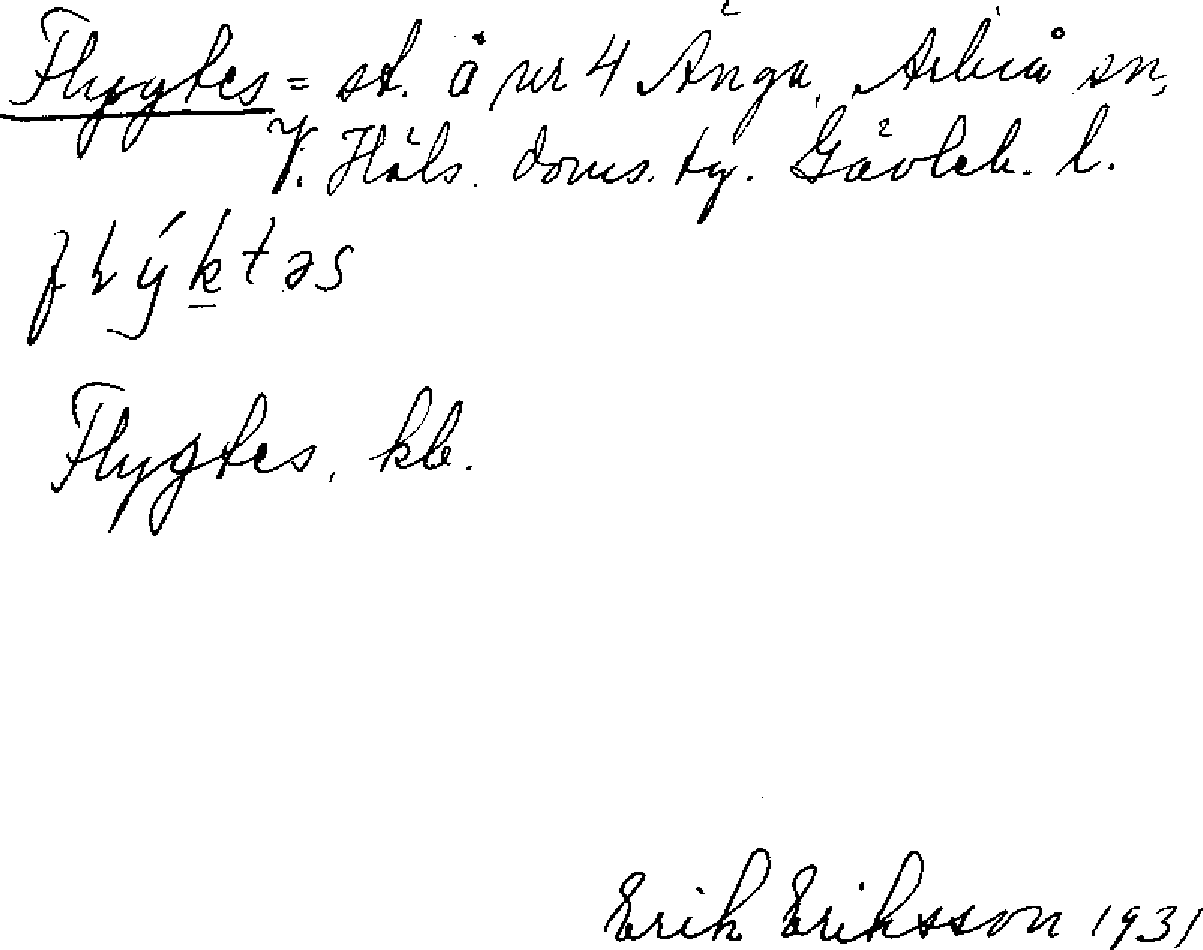 Flygtes = st. å nr 4 Änga, Arbrå sn,
V. Häls. doms. tg. Gävleb. l.
flýktəs
Flygtes, kb.
Erik Eriksson 1931